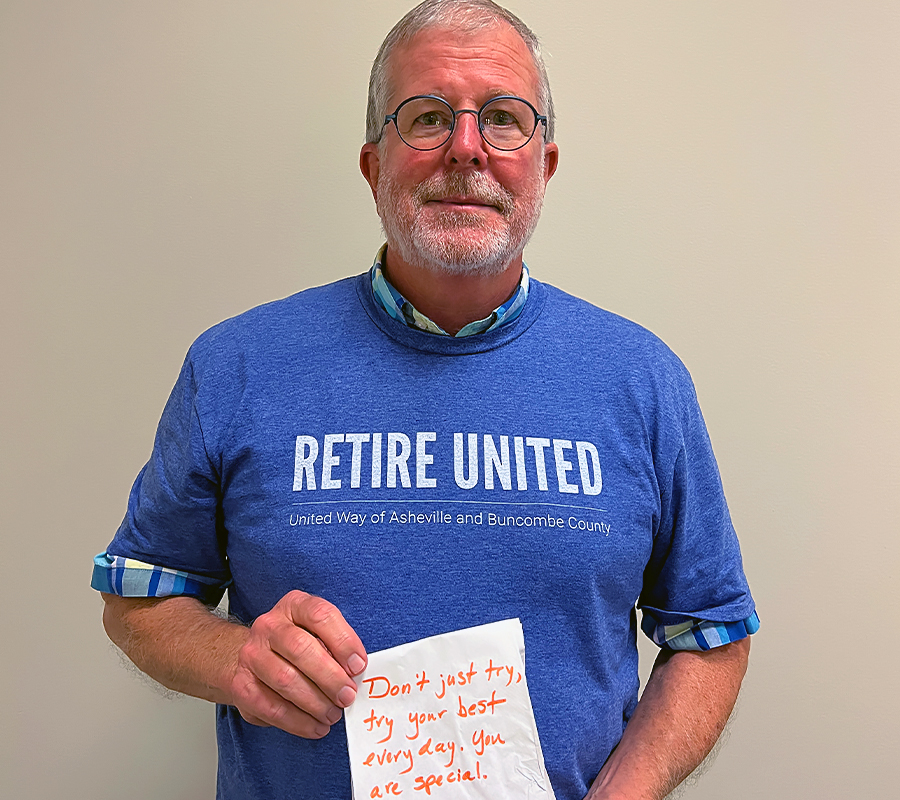 RETIRE UNITED
United Way of Asheville and Buncombe County
Don't just try,
try your best
every day. You
are special.